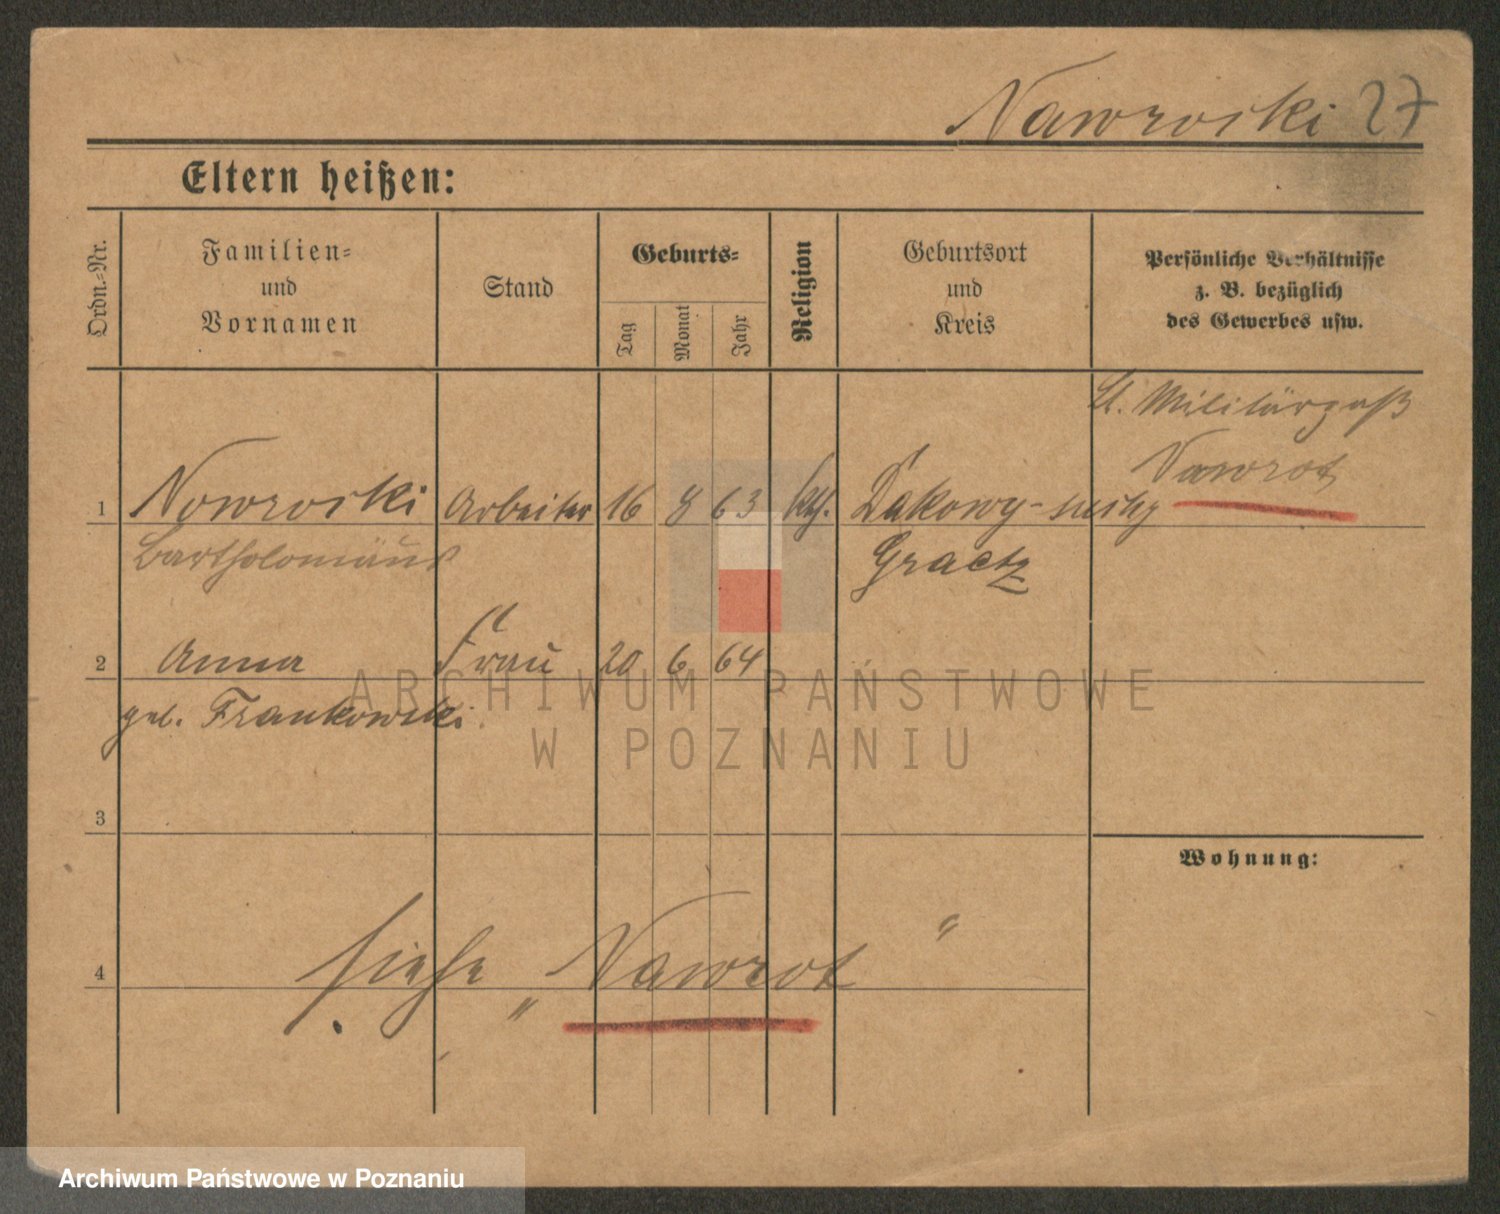 Nawroski 27
Eltern heißen:
Ordn.-Nr.
Familien-
und
Vornamen
Stand
Geburts-
Tag
Monat
Jahr
Religion
Geburtsort
und
Kreis
Persönliche Verhältnisse
z. B. bezüglich
des Gewerbes usw.
Lt. Militärpaß
Nawrot
1 Nowroski Arbeiter 16 8 63 kth. Dakowy-
Bartholomäus Graetz
2 Anna Frau 20 6 64
geb. Frankowski.
3
Wohnung:
4 siehe „Nawrot“
ARCHIWUM PAŃSTWOWE
W POZNANIU
Archiwum Państwowe w Poznaniu